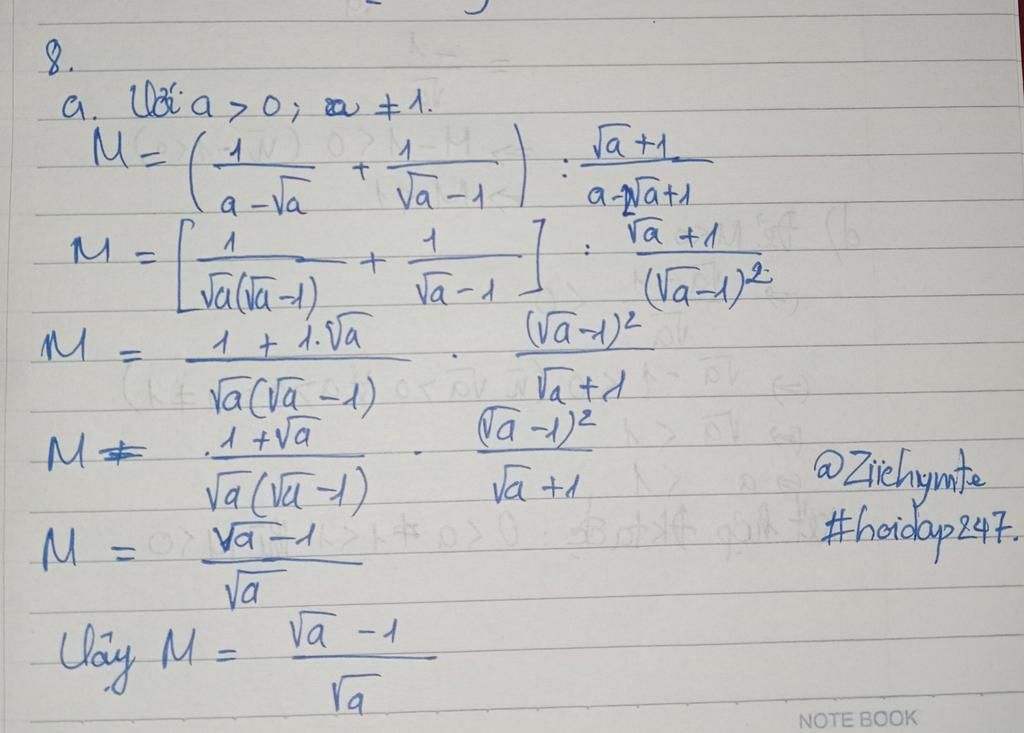 8.
a. Với a > 0; a ≠ 1.
M = (1/(a - √a) + 1/(√a - 1)) : (√a + 1)/(a - 2√a + 1)
M = [1/(√a(√a - 1)) + 1/(√a - 1)] : (√a + 1)/(√a - 1)²
M = (1 + 1.√a)/(√a(√a - 1)) . (√a - 1)²/(√a + 1)
M = (1 + √a)/(√a(√a - 1)) . (√a - 1)²/(√a + 1)
@Ziichymte
M = (√a - 1)/√a
#hoidap247.
Vậy M = (√a - 1)/√a
NOTE BOOK